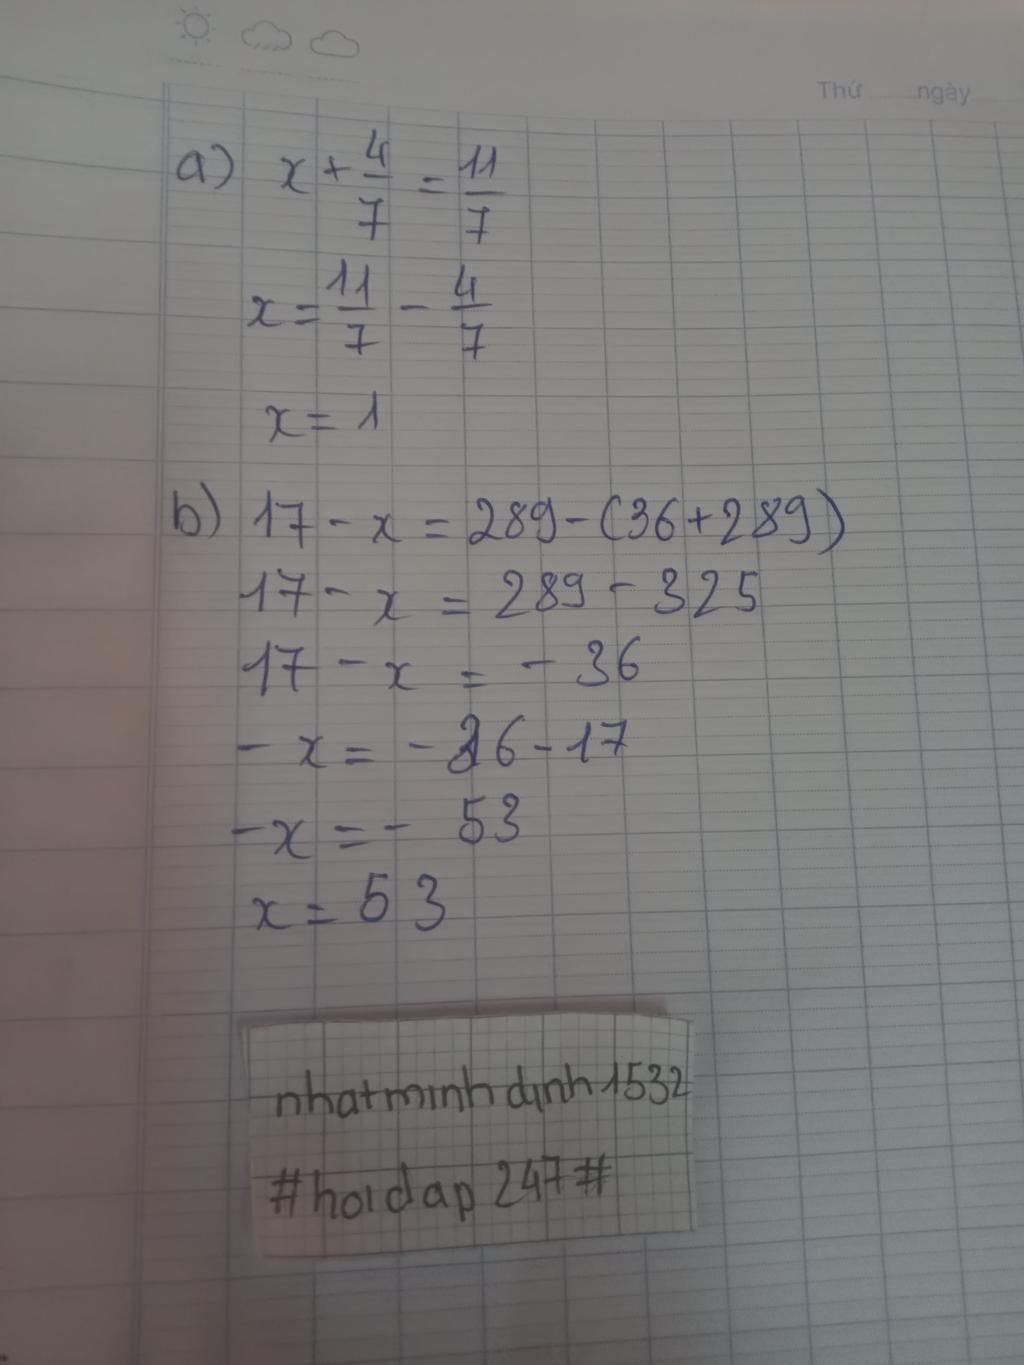 Thứ ngày
a) x + 4/7 = 11/7
x = 11/7 - 4/7
x = 1
b) 17 - x = 289 - (36 + 289)
17 - x = 289 - 325
17 - x = - 36
- x = - 36 - 17
- x = - 53
x = 53
nhatminhdinh1532
#hoidap247#